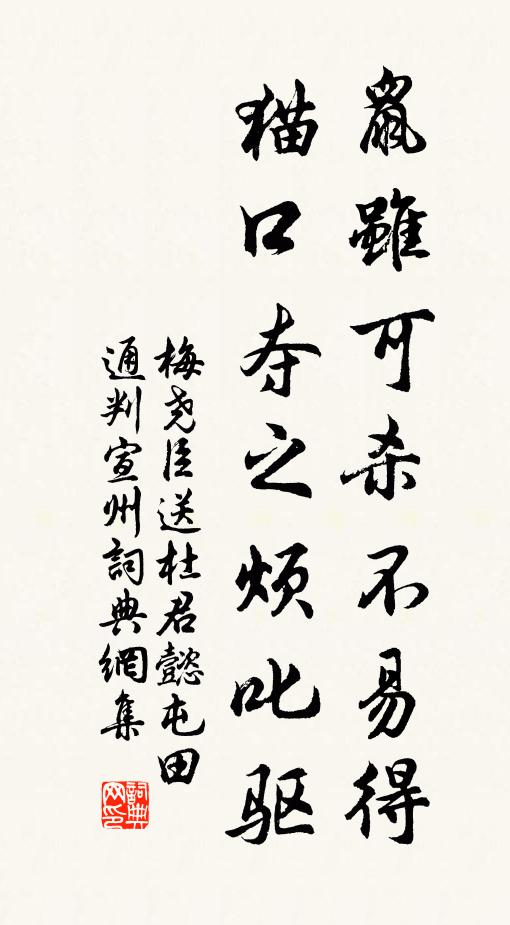 鼠雖可杀不易得
猫口夺之烦叱驱
梅尧臣送杜君懿屯田
通判宣州詞典網集
詞典网印